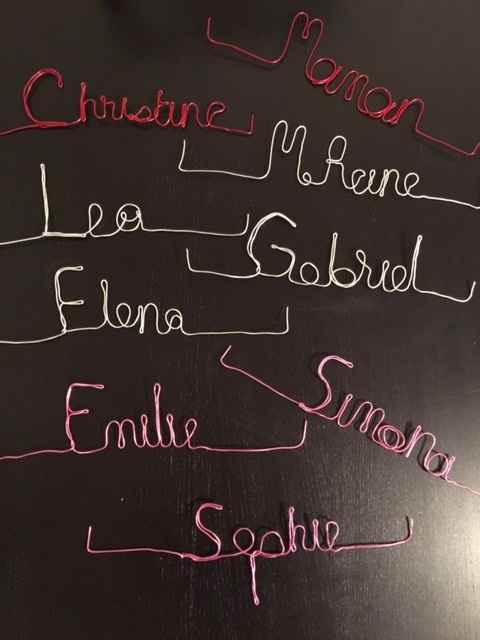 Maman
Christine
M Reine
Lea
Gabriel
Elena
Simona
Emilie
Sophie